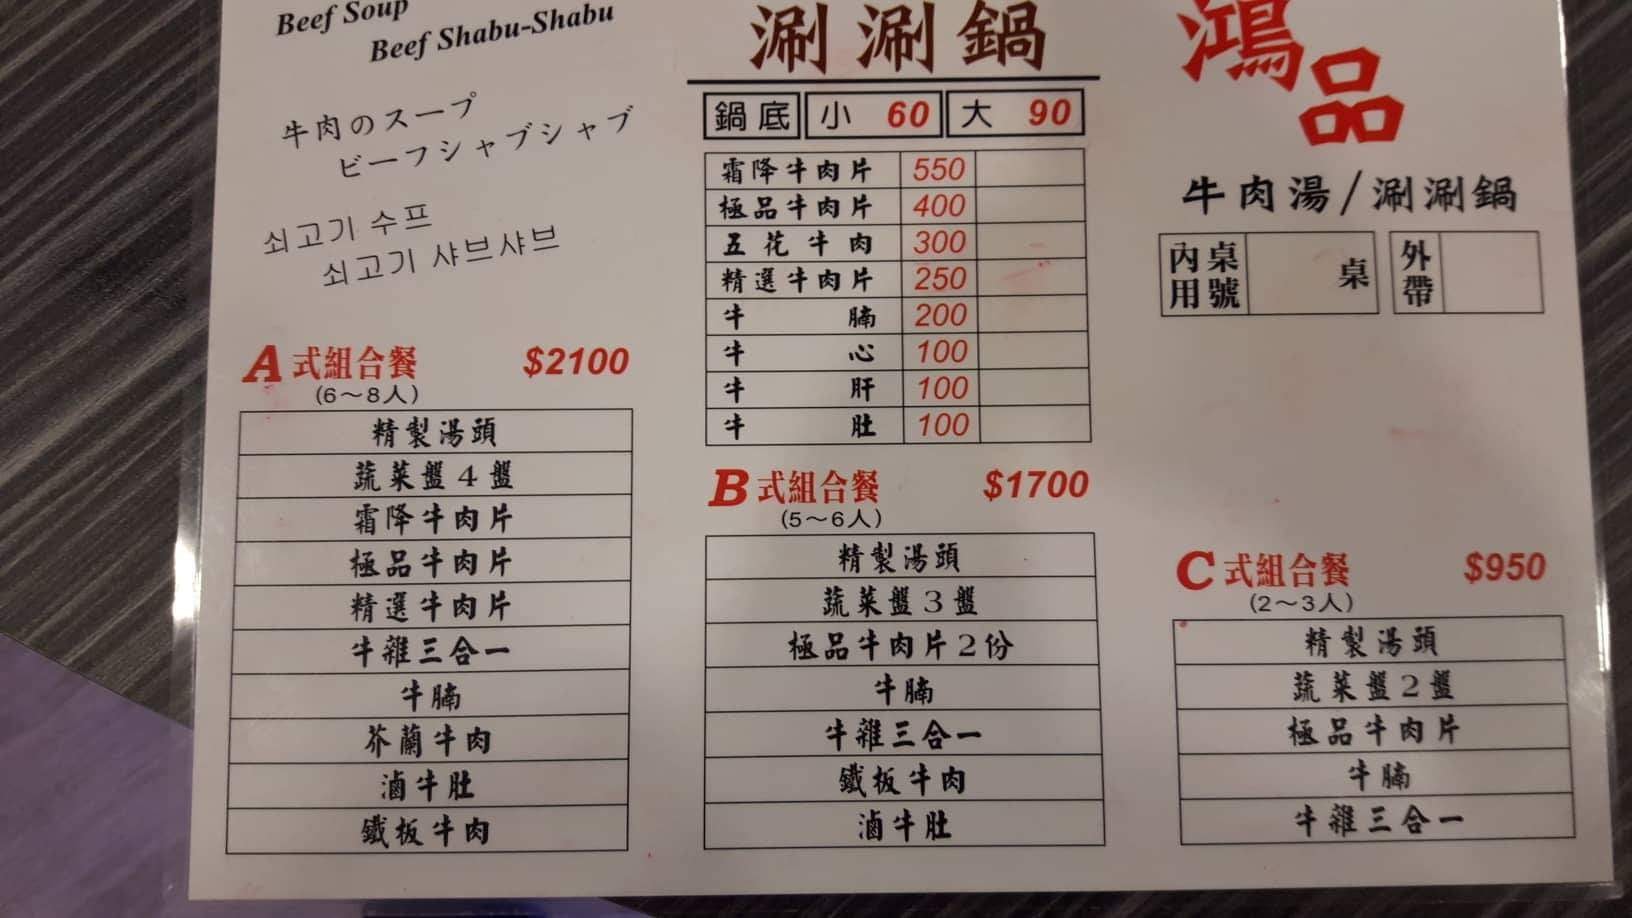 Beef Soup
Beef Shabu-Shabu
牛肉のスープ
ビーフシャブシャブ
쇠고기 수프
쇠고기 샤브샤브
A 式組合餐 $2100
(6～8人)
精製湯頭
蔬菜盤4盤
霜降牛肉片
極品牛肉片
精選牛肉片
牛雜三合一
牛腩
芥蘭牛肉
滷牛肚
鐵板牛肉
涮涮鍋
鍋底 小 60 大 90
霜降牛肉片 550
極品牛肉片 400
五花牛肉 300
精選牛肉片 250
牛腩 200
牛心 100
牛肝 100
牛肚 100
B 式組合餐 $1700
(5～6人)
精製湯頭
蔬菜盤3盤
極品牛肉片2份
牛腩
牛雜三合一
鐵板牛肉
滷牛肚
鴻品
牛肉湯/涮涮鍋
內用 桌號 桌 外帶
C 式組合餐 $950
(2～3人)
精製湯頭
蔬菜盤2盤
極品牛肉片
牛腩
牛雜三合一